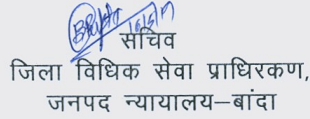 सचिव
जिला विधिक सेवा प्राधिरकण,
जनपद न्यायालय–बांदा